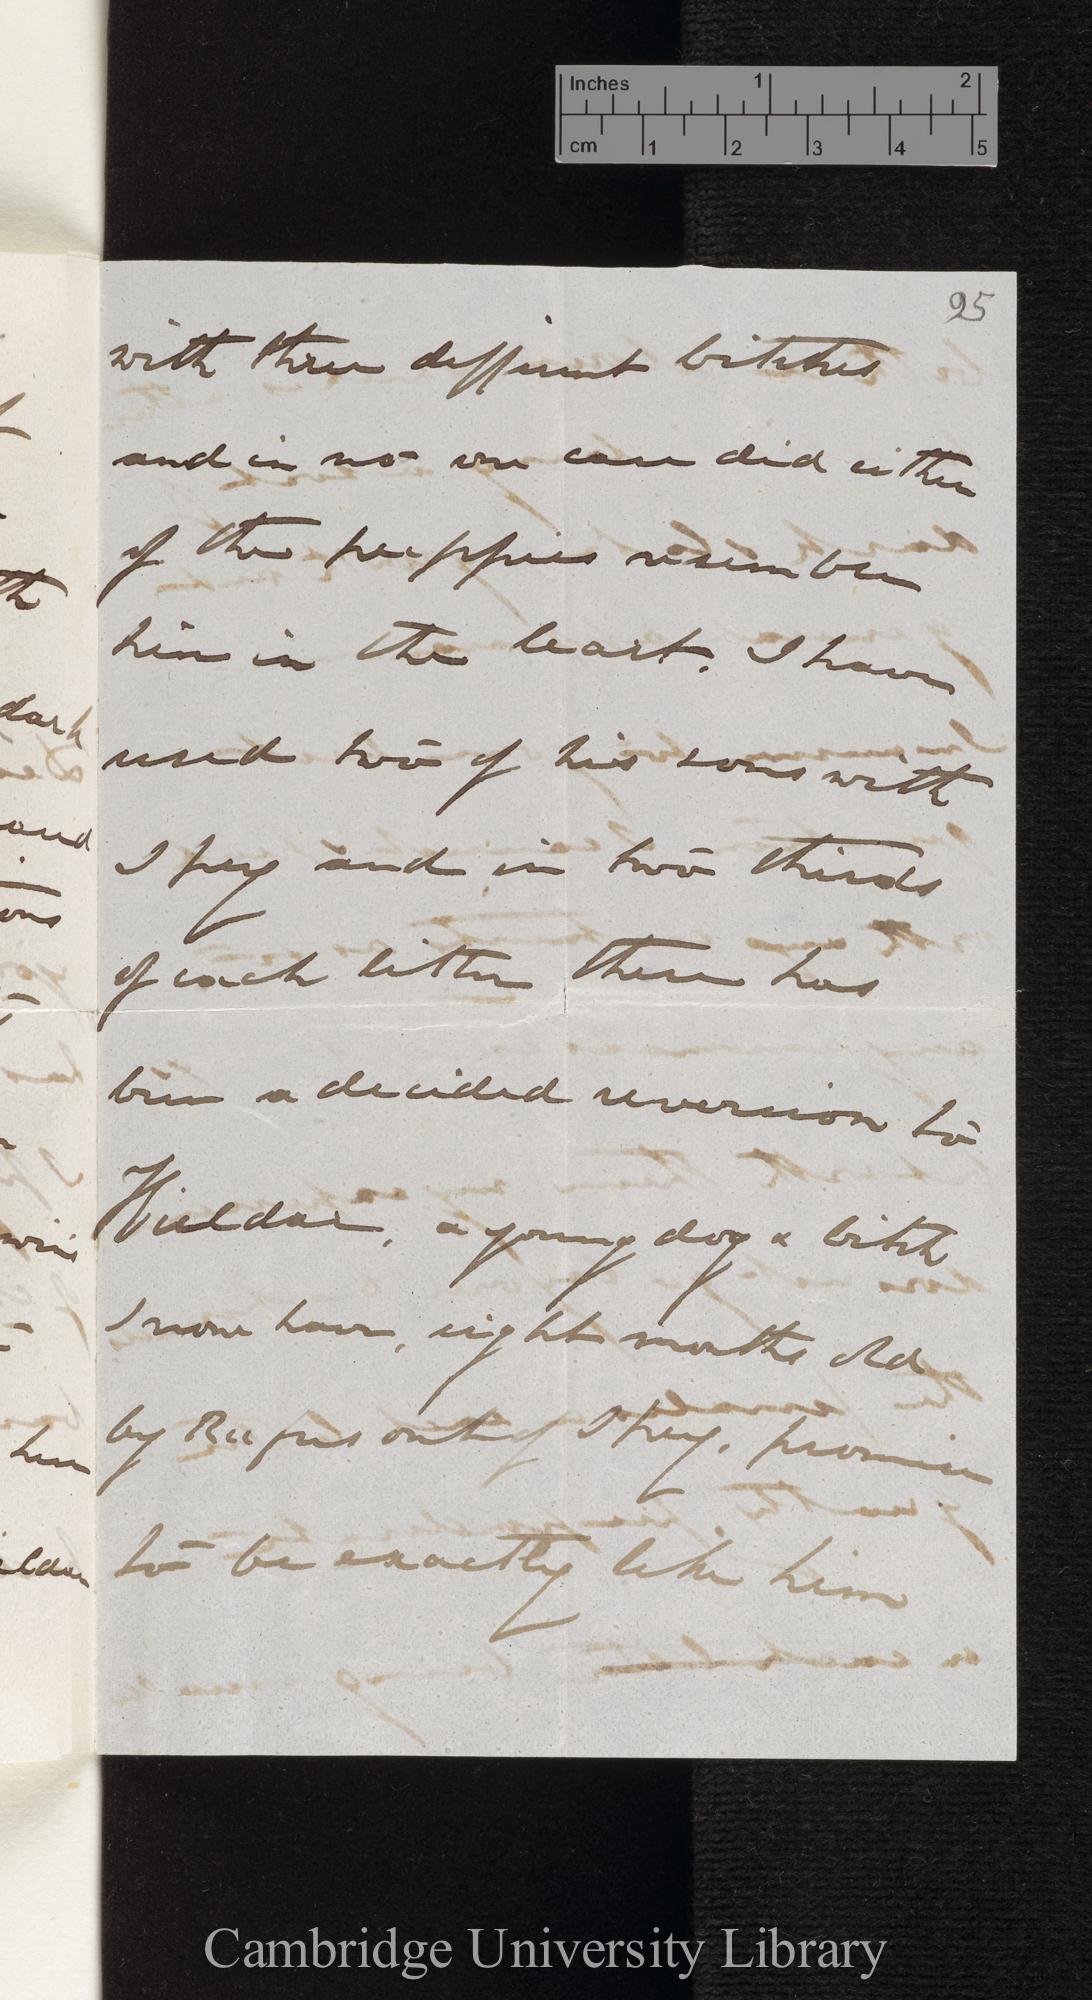 Inches 1 2
cm 1 2 3 4 5
95
with three different bitches
and in no one case did either
of the puppies resemble
him in the least. I have
used two of his sons with
Spey and in two thirds
of each litter there has
been a decided reversion to
Kieldar, a young dog & bitch
I now have, eight months old
by Rufus out of Spey, promise
to be exactly like him
dark
and
Cambridge University Library